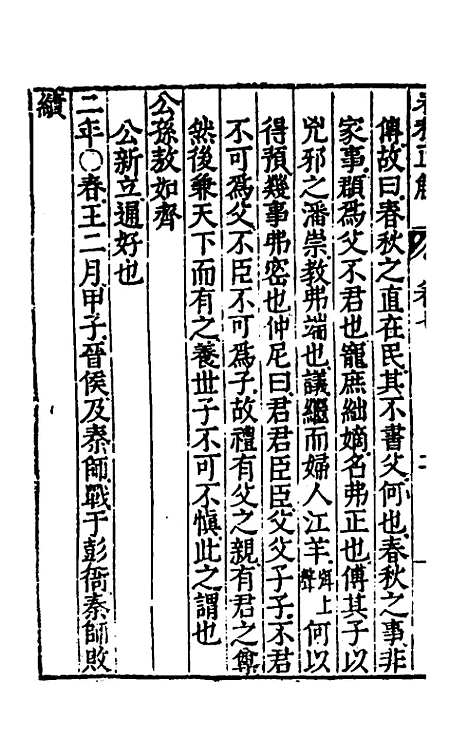 傳故曰春秋之直在民其不書父何也春秋之事非
家事頵爲父不君也寵庶絀嫡名弗正也傅其子以
兇邪之潘崇教弗端也議繼而婦人江羋上聲何以
得預幾事弗密也仲尼曰君君臣臣父父子子不君
不可爲父不臣不可爲子故禮有父之親有君之尊
然後兼天下而有之養世子不可不慎此之謂也
公孫敖如齊
公新立通好也
二年○春王二月甲子晉侯及秦師戰于彭衙秦師敗
績